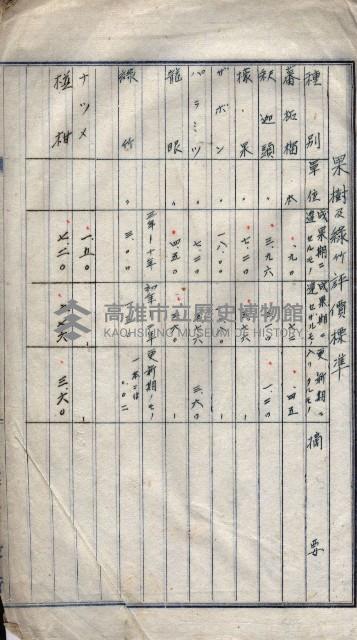 果樹及綠竹評價標準
種別 單位 成果期ニ達セルモノ 成果期ニ達セザルモノ 更新期ニ入リタルモノ 摘要
蕃柘榴 本 .九〇 .四五
釈迦頭 〃 三.九六 一.二〇
檬果 〃 七.二〇
ザボン 〃 一.八〇
パラミツ 〃 七.二〇 三.六〇
龍眼 〃 四.五〇
綠竹 〃 三年ー十年 三.〇〇 更新期ノモノ 一本ニ付 .〇二
ナツメ 一.五〇
椪柑 七.二〇 三.六〇
高雄市立歷史博物館
KAOHSIUNG MUSEUM OF HISTORY